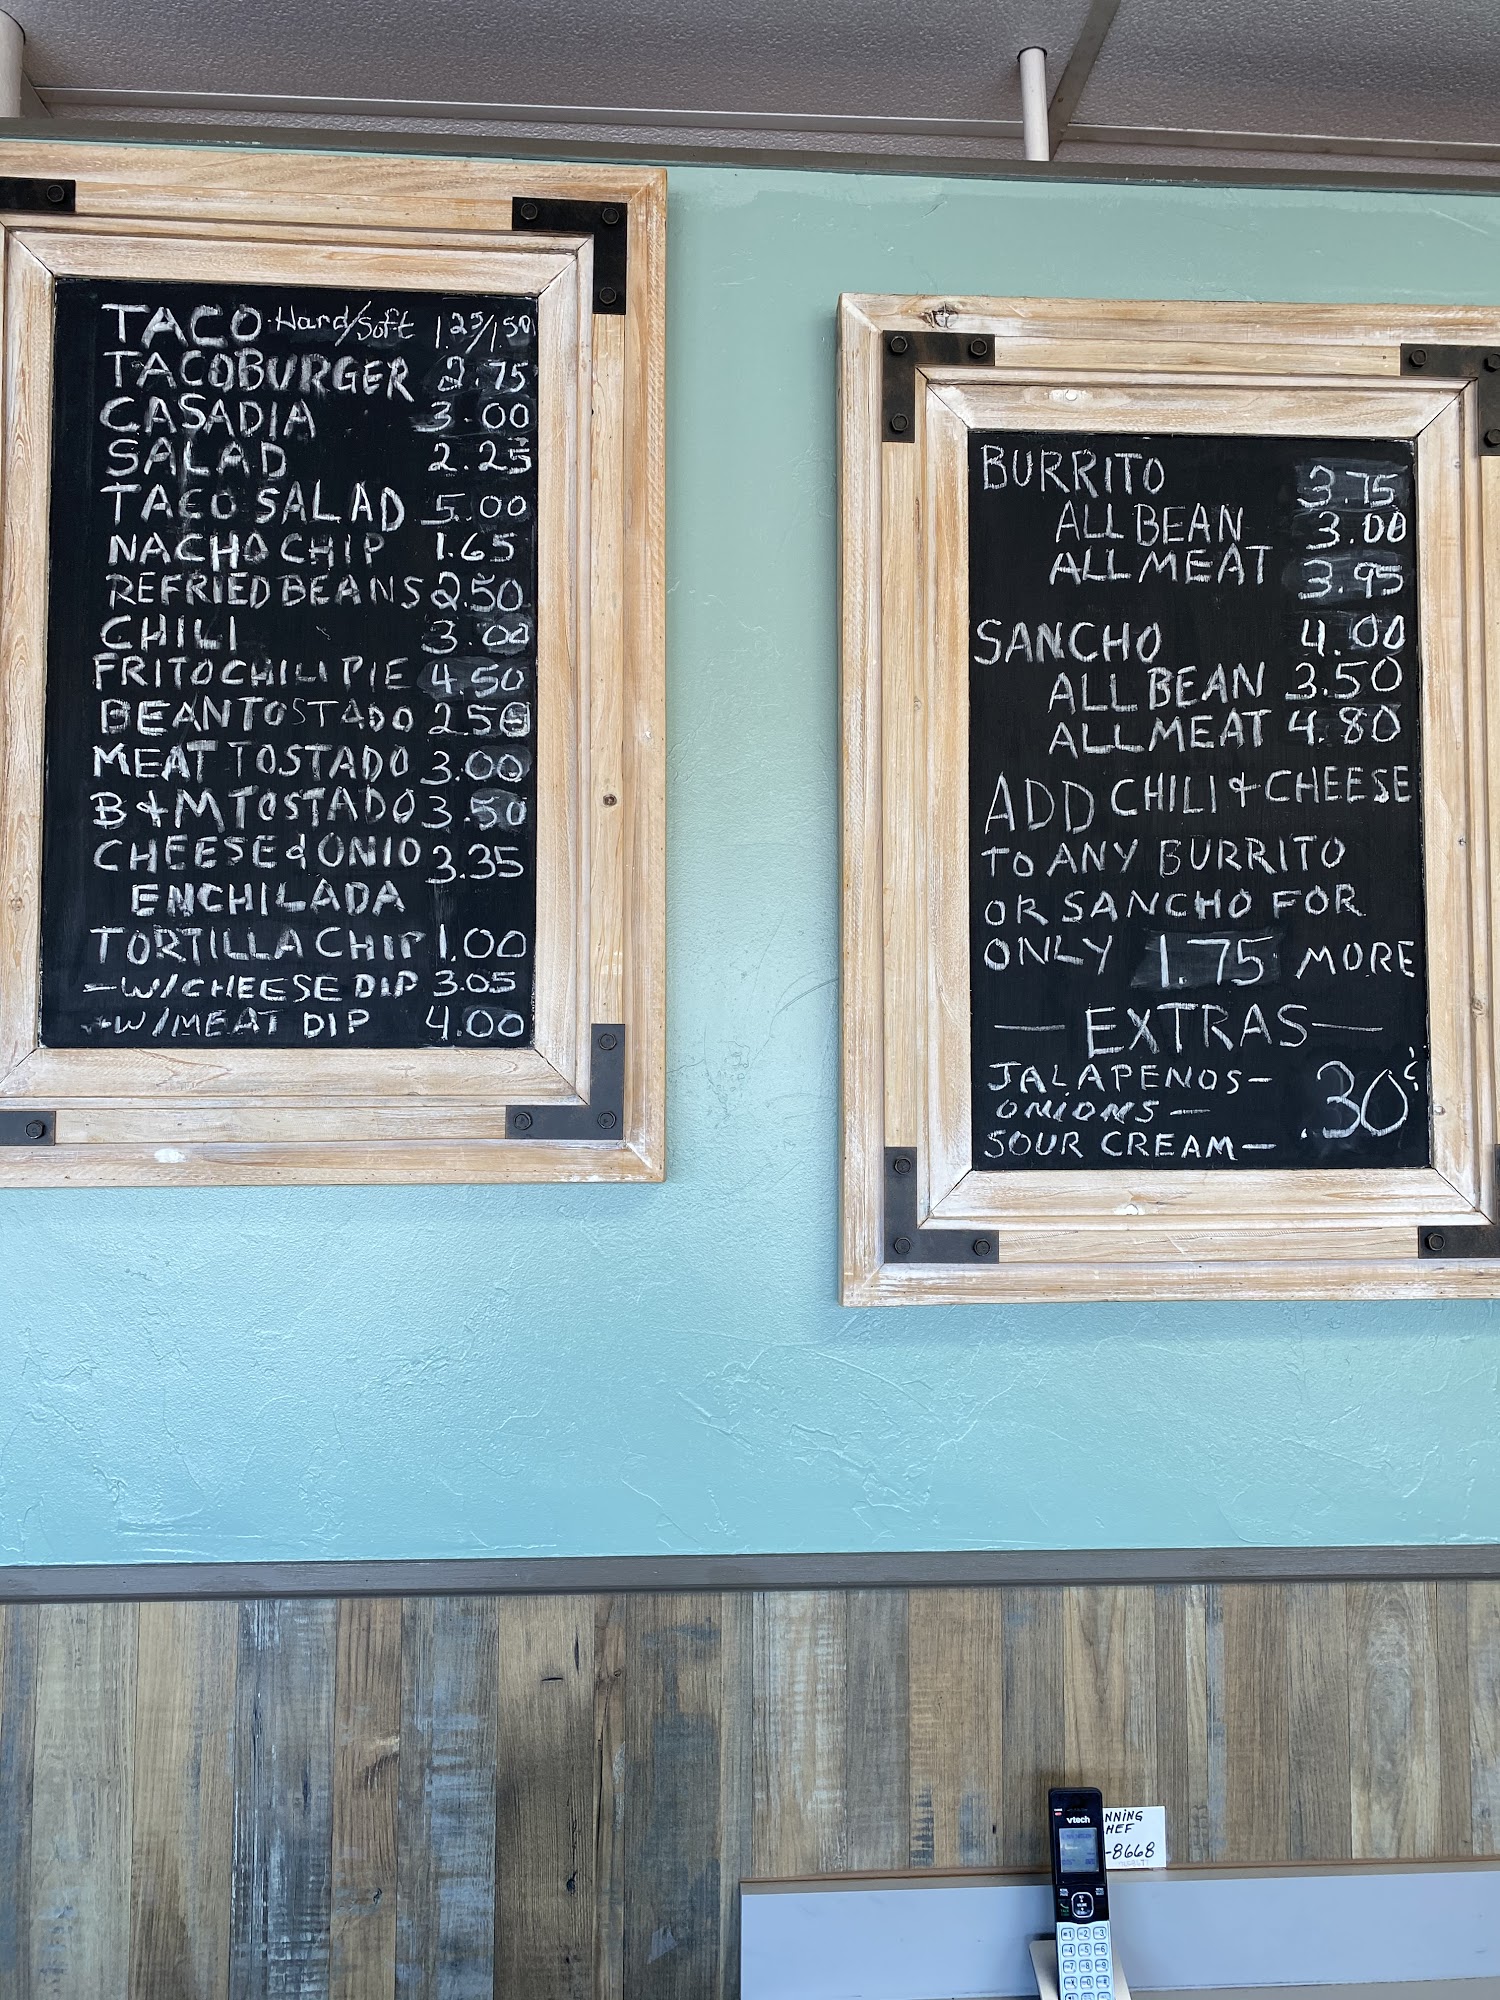 TACO Hard/Soft 1.25/1.50
TACOBURGER 2.75
CASADIA 3.00
SALAD 2.25
TACO SALAD 5.00
NACHO CHIP 1.65
REFRIED BEANS 2.50
CHILI 3.00
FRITO CHILI PIE 4.50
BEAN TOSTADO 2.50
MEAT TOSTADO 3.00
B & M TOSTADO 3.50
CHEESE & ONIO 3.35
ENCHILADA
TORTILLA CHIP 1.00
-W/CHEESE DIP 3.05
-W/MEAT DIP 4.00
BURRITO 3.75
ALL BEAN 3.00
ALL MEAT 3.95
SANCHO 4.00
ALL BEAN 3.50
ALL MEAT 4.80
ADD CHILI & CHEESE
TO ANY BURRITO
OR SANCHO FOR
ONLY 1.75 MORE
— EXTRAS —
JALAPENOS —
ONIONS — .30¢
SOUR CREAM —
vtech
NNING
HEF
-8668